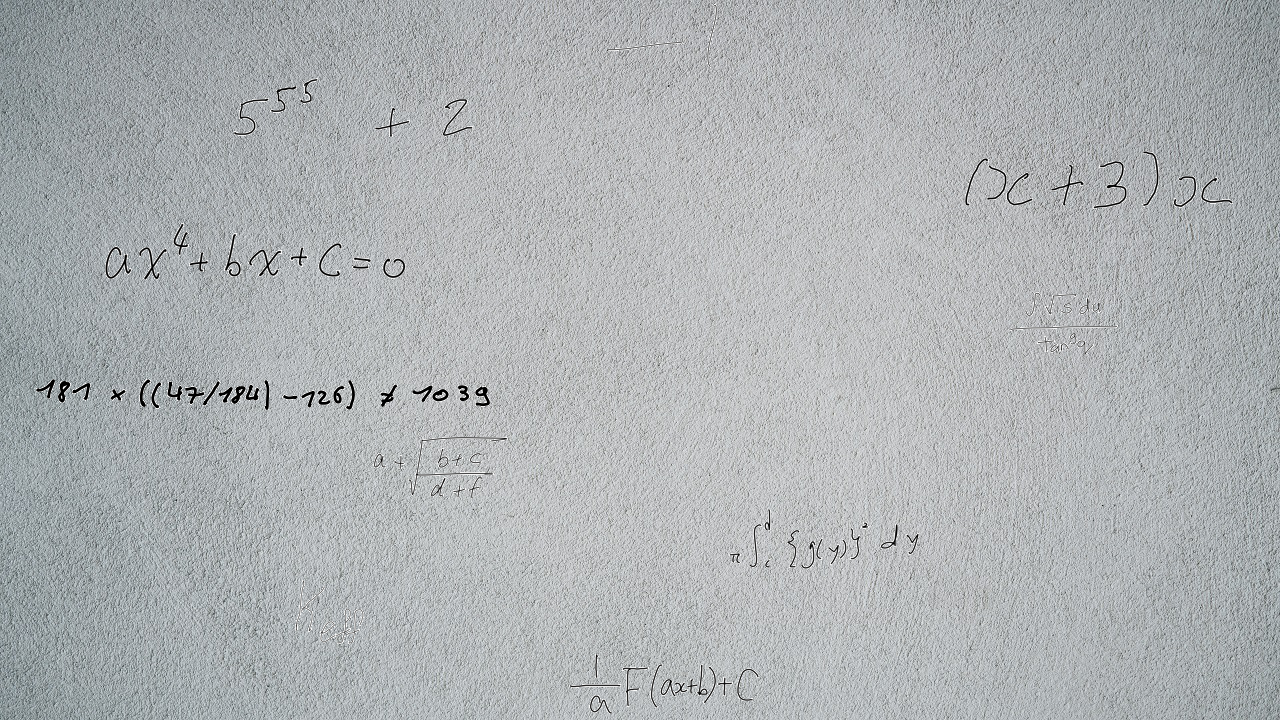 5^{5^5} + 2
(x + 3) x
ax^4 + bx + c = 0
∫√s du / tan^9 q
181 × ((47/184) - 126) ≠ 1039
a + √((b + c)/(d + f))
π ∫_c^d {g(y)}^2 dy
1/a F(ax+b) + C